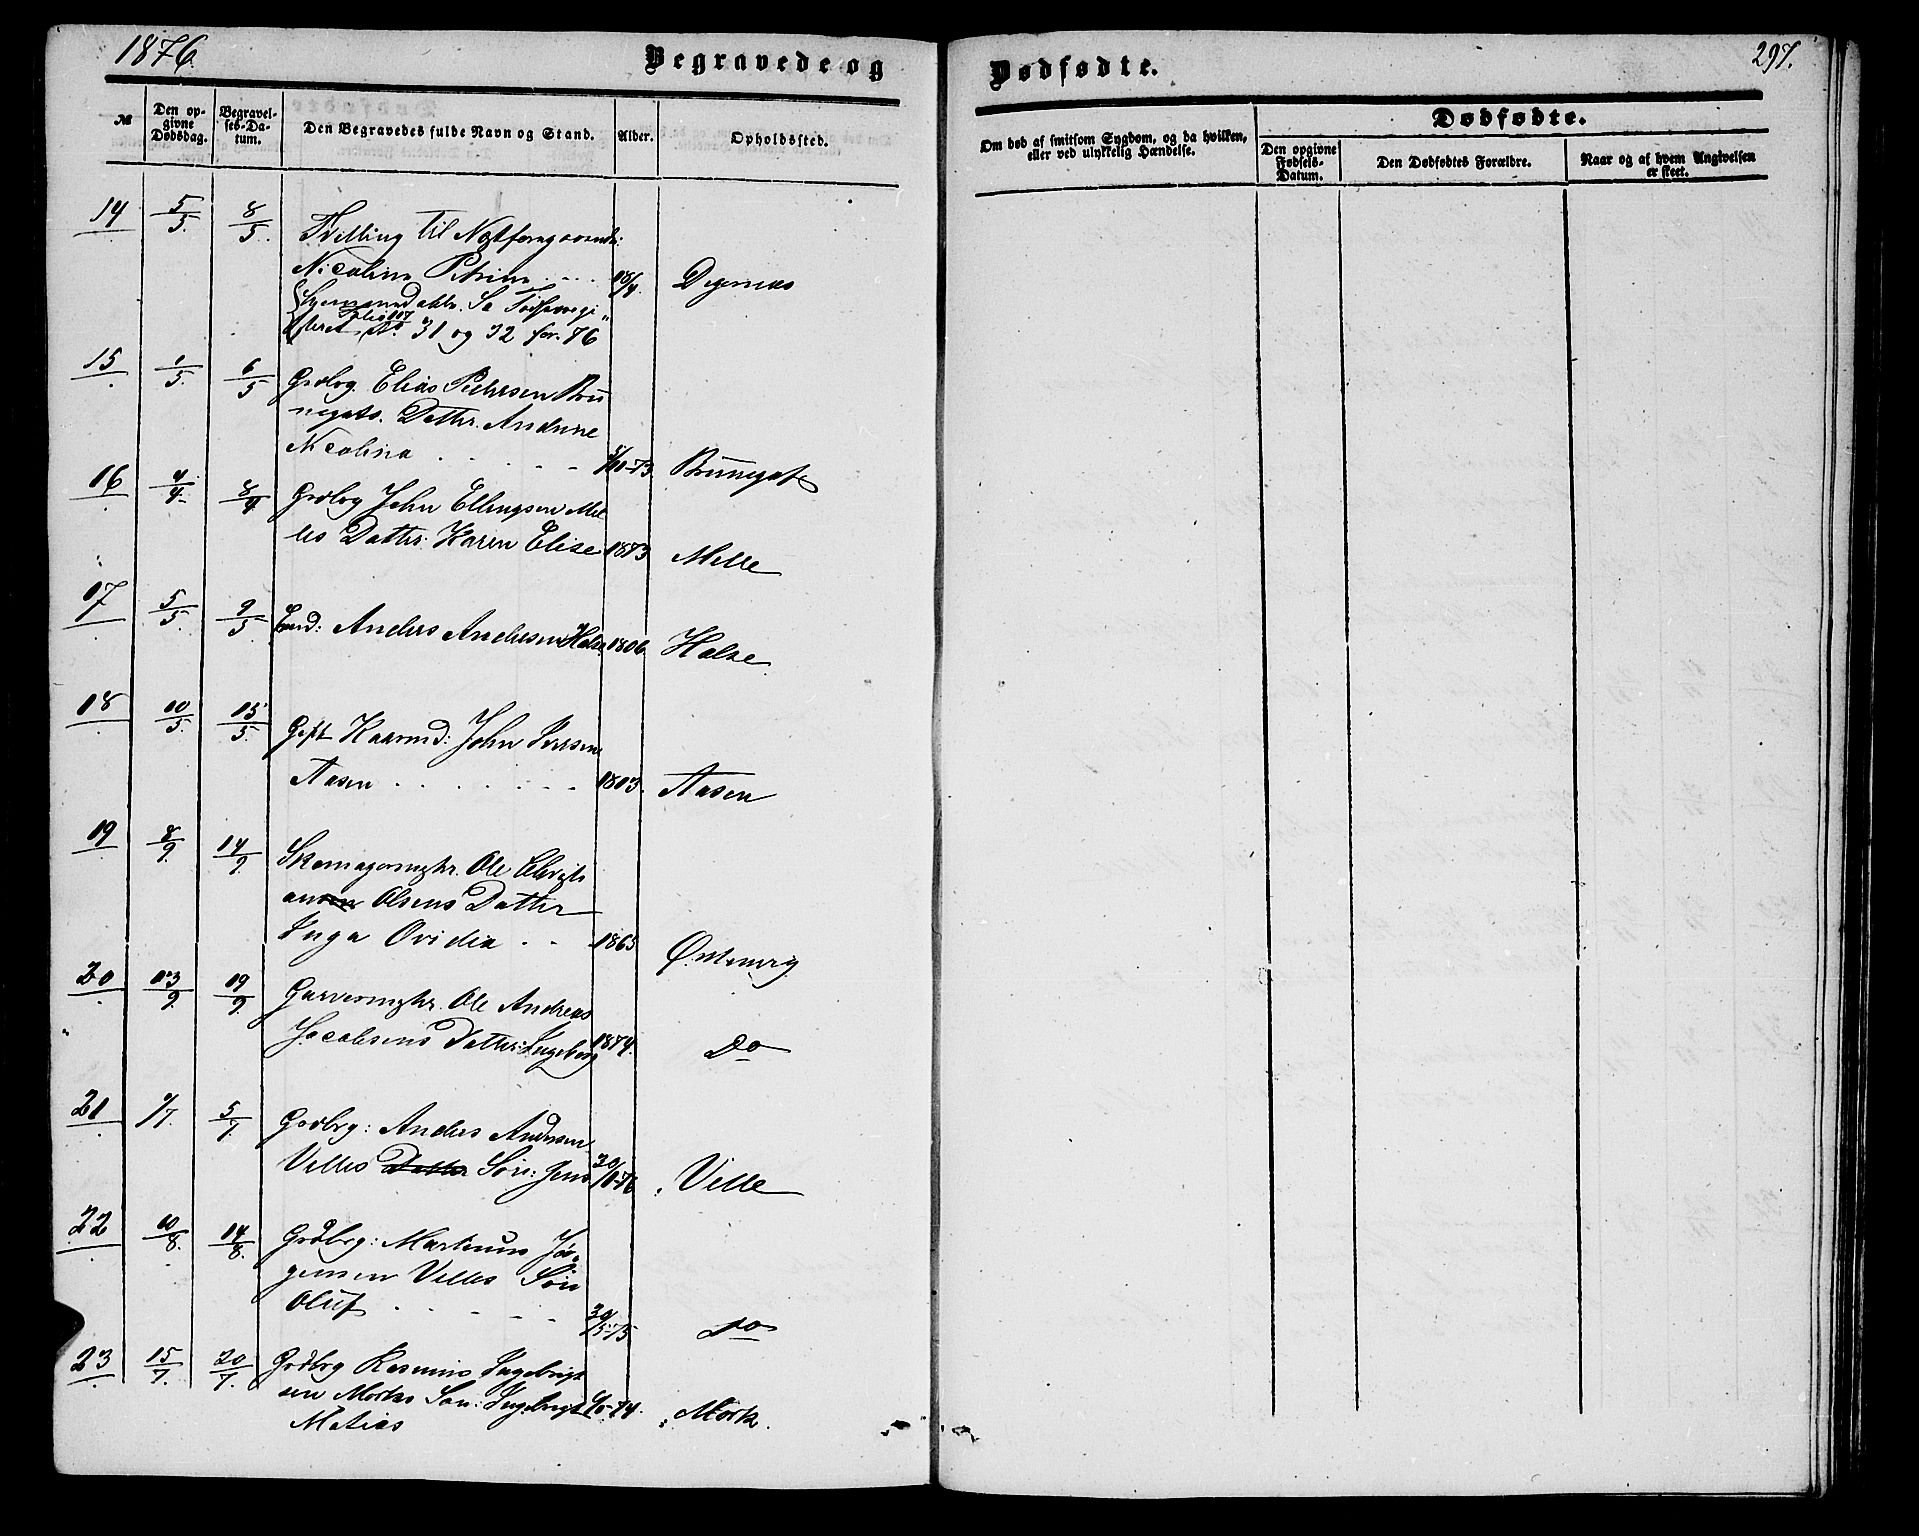 1876.
Begravede og
Dødfødte.
297.
№
Den opgivne Dødsdag.
Begravelses-Datum.
Den Begravedes fulde Navn og Stand.
Alder.
Opholdssted.
Om død af smitsom Sygdom, og da hvilken, eller ved ulykkelig Hændelse.
Dødfødte.
Den opgivne Fødsels-Datum.
Den Dødfødtes Forældre.
Naar og af hvem Angivelsen er skeet.
14 5/5 8/5 Tvilling til Næstforegaaende:
Nicoline Petrine 18/4 Degernes
31 og 32 for 76
15 1/5 6/5 Grdbrg. Elias Pedersen Brunegots. Datter. Andrine
Nicolina Brunegot
16 4/4 8/4 Grdbrg John Ellingsen Melles Datter: Karen Elise 1873 Melle
17 5/5 9/5 Anders Andersen Halse 1806 Halse
18 10/5 15/5 Gift Kaarmd: John Iversen
Aasen 1803 Aasen
19 8/9 14/9 Skomagermstr. Ole Christi
ansen Olsens Datter
Inga Ovidia 1865
20 13/9 19/9 Garvermstr. Ole Andreas
Jacobsens Datter: Ingeborg 1874. Do
21 1/7 5/7 Grdbrg: Anders Andersen
Velles Datter Søn: Jens Velle
22 10/8 14/8 Grdbrg: Martinus Jørgensen Velles Søn
Oluf 30/5-75 Do
23 15/7 20/7 Grdbrg Rasmus Ingebrigt
sen Mørks Søn: Ingebrigt Mørk.
Matias